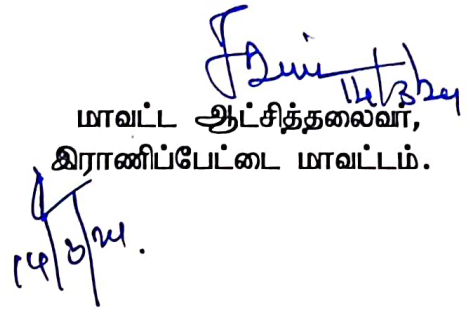 14/3/24
மாவட்ட ஆட்சித்தலைவர்,
இராணிப்பேட்டை மாவட்டம்.
14/3/24.